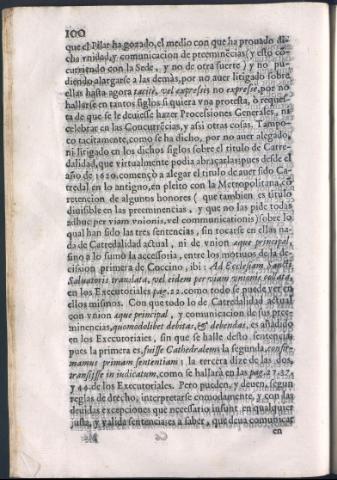 100
que el Pilar ha gozado, el medio con que ha prouado dicha
vnidad, y comunicacion de preeminẽcias (y esto cõ
curriendo con la Sede, y no de otra suerte) y no pu-
diendo alargarse à las demàs, por no auer litigado sobre
ellas hasta agora tacitè, vel expressis no expresse, por no
hallarse en tantos siglos si quiera vna protesta, ò reques-
ta de que se le deuiesse hazer Processiones Generales, ni
celebrar en las Concurrẽcias, y assi otras cosas. Tampo-
co tacitamente, como se ha dicho, por no auer alegado,
ni litigado en los dichos siglos sobre el titulo de Catre-
dalidad, que virtualmente podia abraçarlas; pues desde el
año de 1620. començò a alegar el titulo de auer sido Ca-
tredal en lo antigno, en pleito con la Metropolitana, cõ
retencion de algunos honores (que tambien es titulo
diuisible en las preeminencias, y que no las pide todas
adhuc per viam vnionis, vel communicationis) sobre lo
qual han sido las tres sentencias, sin tocarse en ellas na-
da de Catredalidad actual, ni de vnion aque principal,
sino a lo sumo la accessoria, entre los motiuos de la de-
cission primera de Coccino, ibi: Ad Ecclesiam Sancti
Saluatoris translata, vel eidem per viam vnionis collata,
en los Executoriales pag. 22. como todo se puede ver en
ellos mismos. Con que todo lo de Catredalidad actual
con vnion aque principal, y comunicacion de sus pree-
minencias, quomodolibet debitas, & debendas, es añadido
en los Executoriales, sin que se halle desto sentencia;
pues la primera es, fuisse Cathedralem la segunda, confir-
mamus primam sententiam: la tercera dize de las dos,
transisse in iudicatum, como se hallarà en las pag. 27. 37.
y 44 de los Executoriales. Pero pueden, y deuen, segun
reglas de drecho, interpretarse comodamente, y con las
deuidas excepciones que necessario insunt en qualquier
justa, y valida sentencia; es a saber, que deua comunicar
en